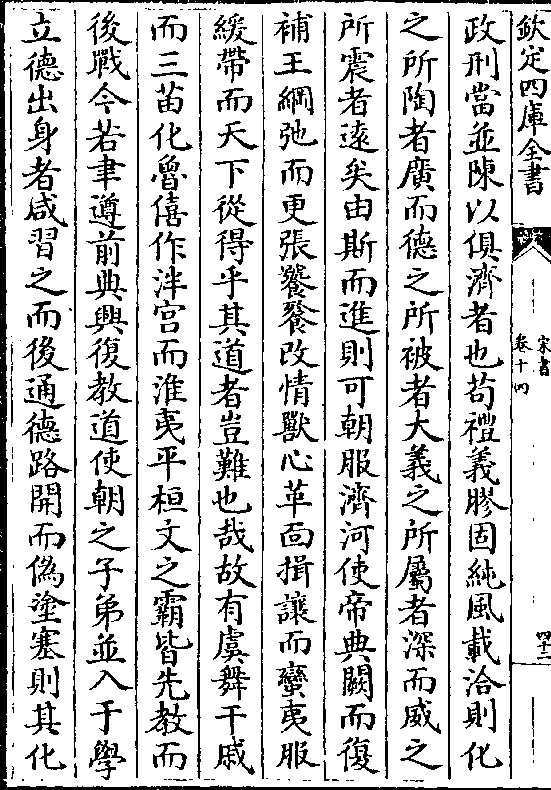 欽定四庫全書
宋書
卷十四
四十二
政刑當並陳以俱濟者也苟禮義膠固純風載洽則化
之所陶者廣而德之所被者大義之所屬者深而威之
所震者遠矣由斯而進則可朝服濟河使帝典闕而復
補王綱弛而更張饕餮改情獸心革面揖讓而蠻夷服
緩帶而天下從得乎其道者豈難也哉故有虞舞干戚
而三苗化魯僖作泮宫而淮夷平桓文之霸皆先教而
後戰今若聿遵前典興復教道使朝之子弟並入于學
立德出身者咸習之而後通德路開而偽塗塞則其化